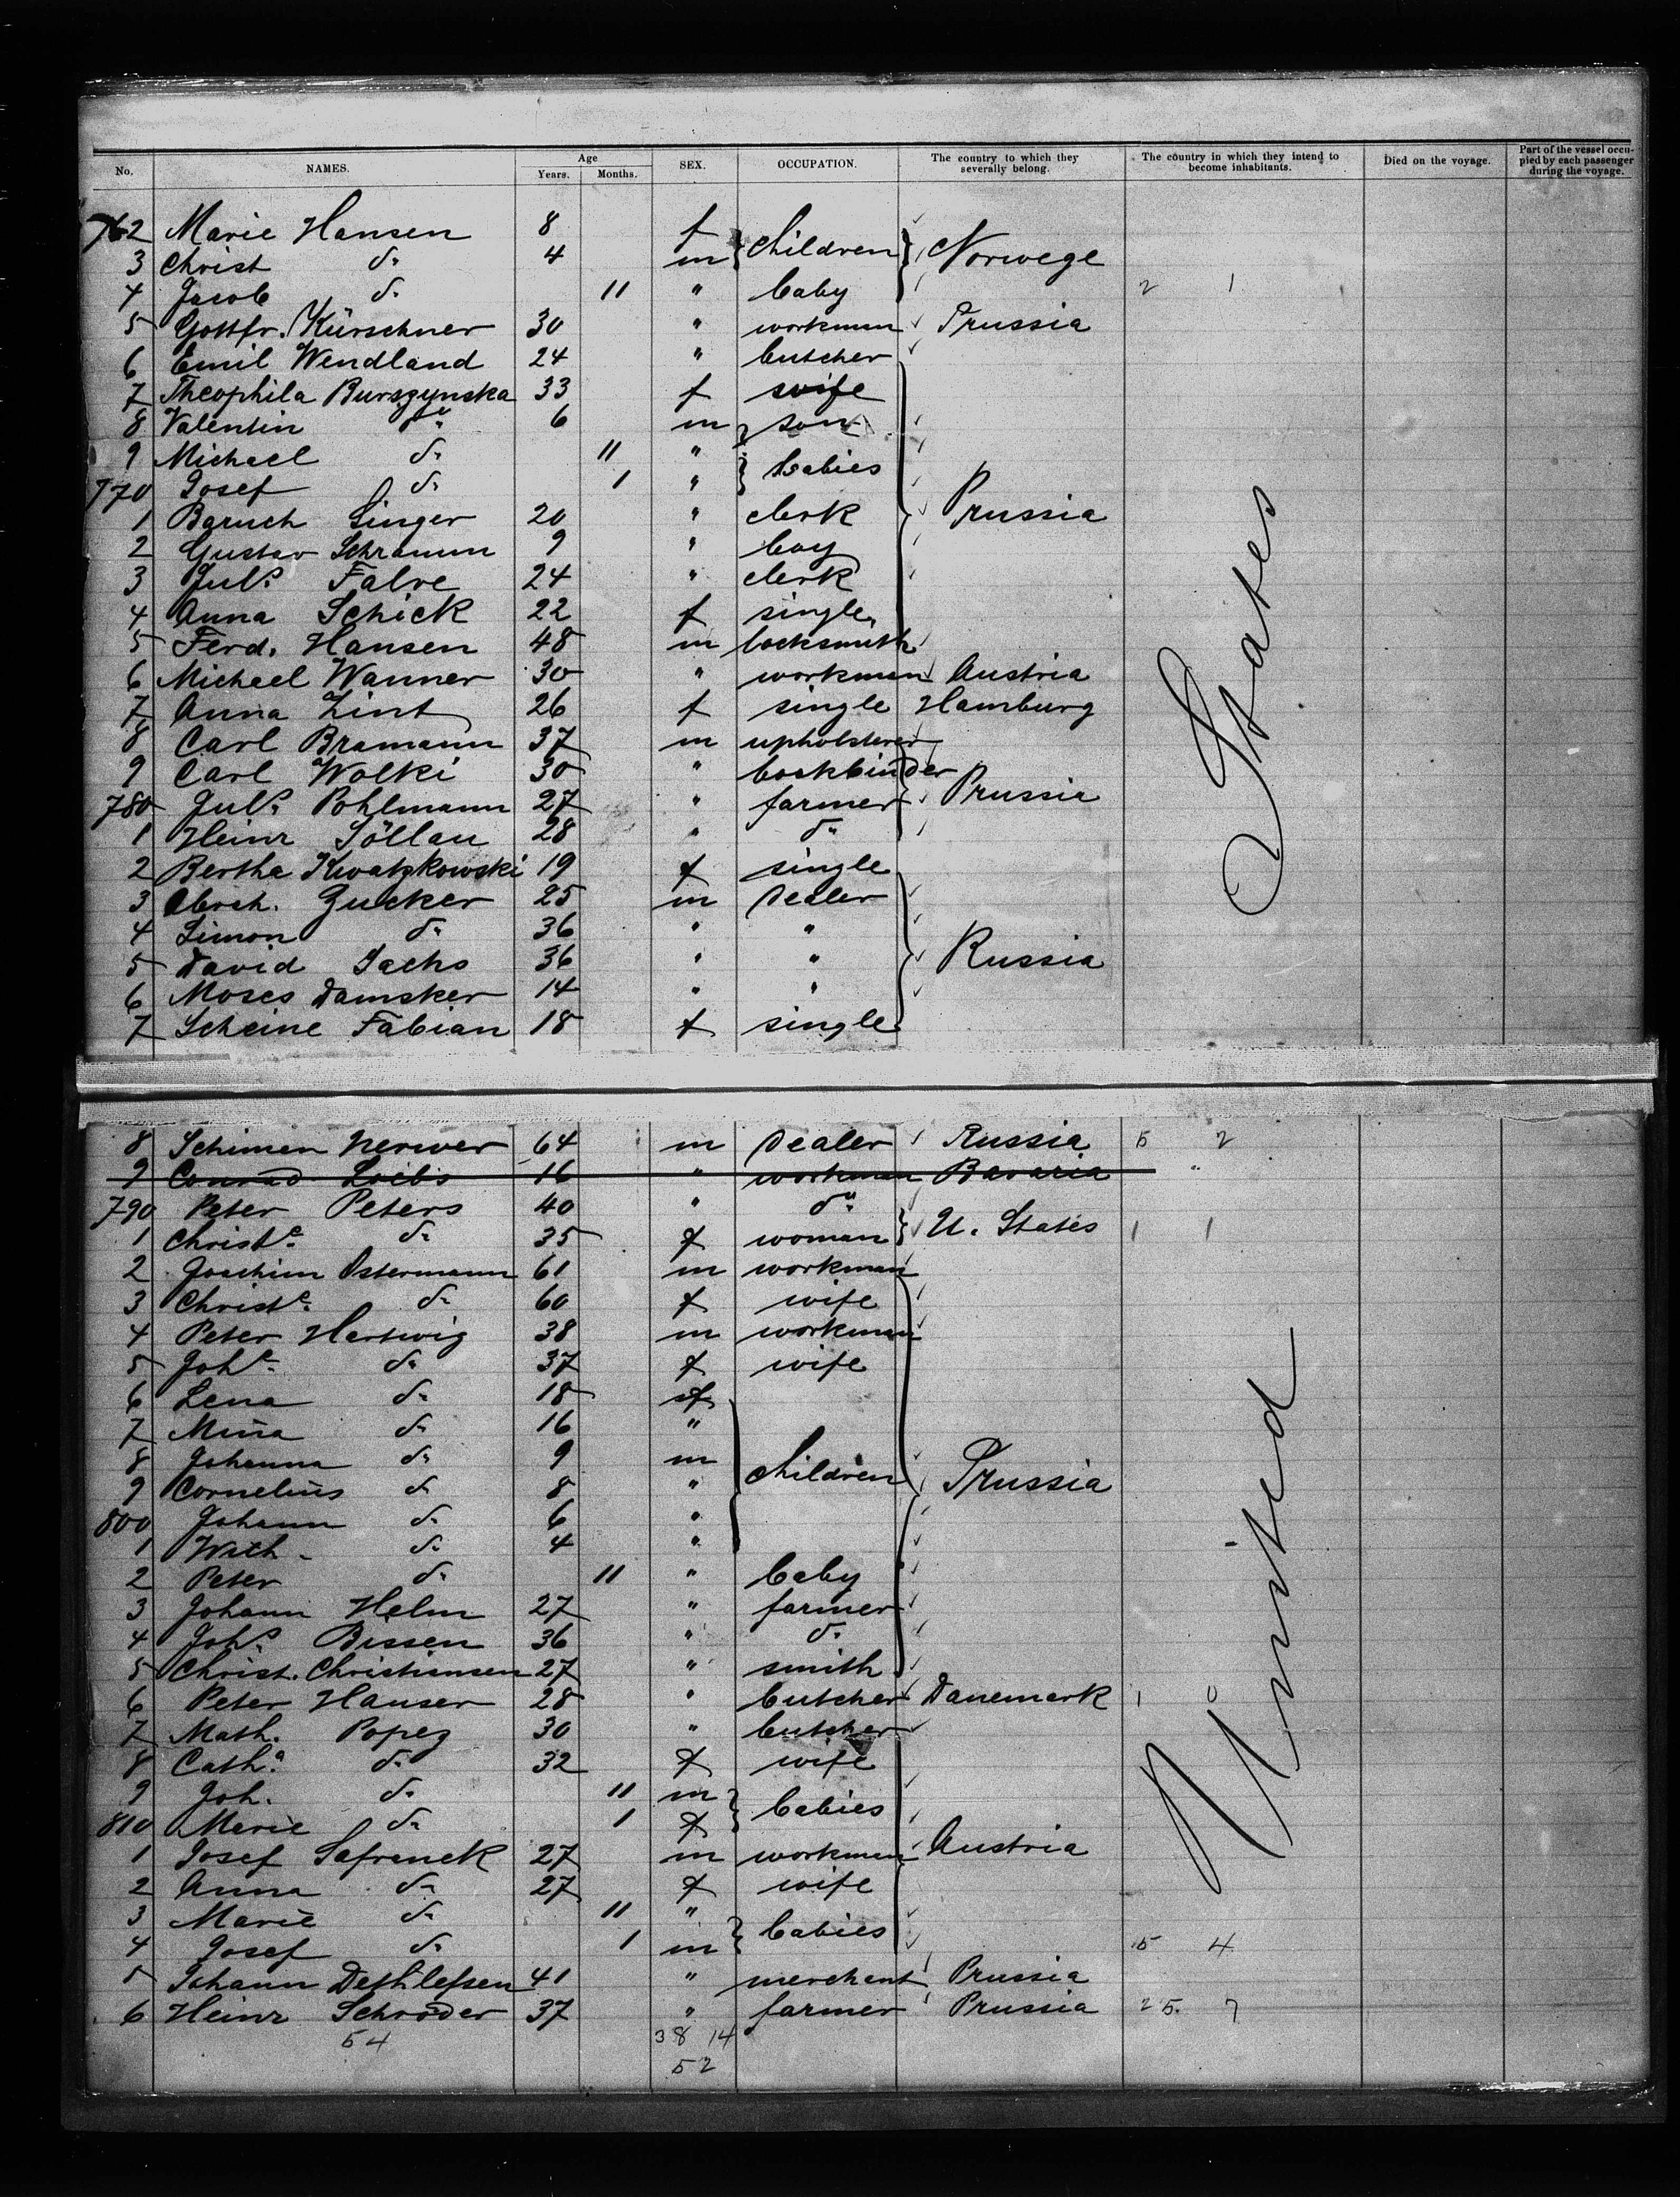 No. NAMES. Age Years. Months. SEX. OCCUPATION. The country to which they severally belong. The country in which they intend to become inhabitants. Died on the voyage. Part of the vessel occupied by each passenger during the voyage.
762 Marie Hansen 8 f
3 Christ do 4 m } children } Norwege
4 Jacob do 11 " baby 2 1
5 Gottfr. Kürschner 30 " workman Prussia
6 Emil Wendland 24 " butcher
7 Theophila Burszynska 33 f wife
8 Valentin do 6 m son
9 Michael do 11 "
770 Josef do 1 " } babies
1 Baruch Singer 20 " clerk Prussia
2 Gustav Schramm 9 " boy
3 Juls Falve 24 " clerk
4 Anna Schick 22 f single
5 Ferd. Hansen 48 m locksmith
6 Michael Wanner 30 " workman Austria
7 Anna Zint 26 f single Hamburg
8 Carl Bramann 37 m upholsterer
9 Carl Wolki 30 " bookbinder
780 Juls Pohlmann 27 " farmer Prussia
1 Heinr Söllau 28 " do
2 Bertha Kwatzkowski 19 f single
3 Abrah. Zucker 25 m dealer
4 Simon do 36 " "
5 David Sachs 36 " " Russia
6 Moses Damsker 14 " "
7 Scheine Fabian 18 f single
8 Schimen Nerwer 64 m dealer Russia 5 2
9 Conrad Loibs 16 " workman Bavaria "
790 Peter Peters 40 " do
1 Christe do 35 f woman } U. States 1 1
2 Joachim Ostermann 61 m workman
3 Christe do 60 f wife
4 Peter Hertwig 38 m workman
5 Johe do 37 f wife
6 Lena do 18 f
7 Mina do 16 "
8 Johanna do 9 m
9 Cornelius do 8 " children Prussia
800 Johann do 6 "
1 Wilh. do 4 "
2 Peter do 11 " baby
3 Johann Helm 27 " farmer
4 Johs Bissen 36 " do
5 Christ. Christiansen 27 " smith
6 Peter Hauser 28 " butcher Danemark 1 0
7 Math. Popez 30 " butcher
8 Catha do 32 f wife
9 Joh. do 11 m
810 Marie do 1 f } babies
1 Josef Safranek 27 m workman Austria
2 Anna do 27 f wife
3 Marie do 11 "
4 Josef do 1 m } babies 15 4
5 Johann Dethlefsen 41 " merchant Prussia
6 Heinr Schröder 37 " farmer Prussia 25. 7
54 38 14
52
United States